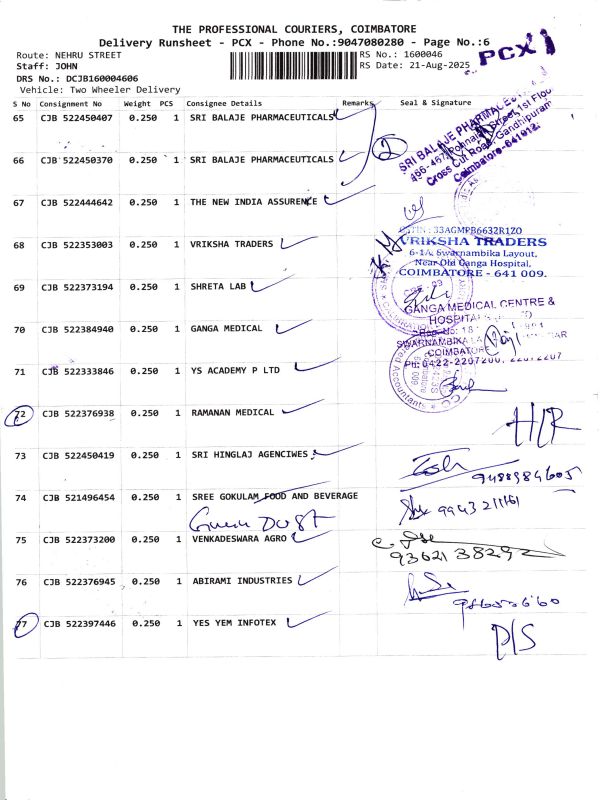 THE PROFESSIONAL COURIERS, COIMBATORE
Delivery Runsheet - PCX - Phone No.:9047080280 - Page No.:6
PCX
Route: NEHRU STREET
RS No.: 1600046
Staff: JOHN
RS Date: 21-Aug-2025
DRS No.: DCJB160004606
Vehicle: Two Wheeler Delivery
S No Consignment No Weight PCS Consignee Details Remarks Seal & Signature
65 CJB 522450407 0.250 1 SRI BALAJE PHARMACEUTICALS
SRI BALAJE PHARMACE
Cross Cut Road, Gandhipuram
Coimbatore-641012.
66 CJB 522450370 0.250 1 SRI BALAJE PHARMACEUTICALS
2
67 CJB 522444642 0.250 1 THE NEW INDIA ASSURENCE
GSTIN: 33AGMPB6632R1Z0
68 CJB 522353003 0.250 1 VRIKSHA TRADERS
VRIKSHA TRADERS
6-1A, Swarnambika Layout,
Near Old Ganga Hospital,
COIMBATORE - 641 009.
69 CJB 522373194 0.250 1 SHRETA LAB
GANGA MEDICAL CENTRE &
HOSPITAL
70 CJB 522384940 0.250 1 GANGA MEDICAL
SWARNAMBIKA LA
COIMBATORE
Ph: 0422-2207200,
71 CJB 522333846 0.250 1 YS ACADEMY P LTD
72 CJB 522376938 0.250 1 RAMANAN MEDICAL
H/R
73 CJB 522450419 0.250 1 SRI HINGLAJ AGENCIWES
74 CJB 521496454 0.250 1 SREE GOKULAM FOOD AND BEVERAGE
75 CJB 522373200 0.250 1 VENKADESWARA AGRO
76 CJB 522376945 0.250 1 ABIRAMI INDUSTRIES
77 CJB 522397446 0.250 1 YES YEM INFOTEX
D/S